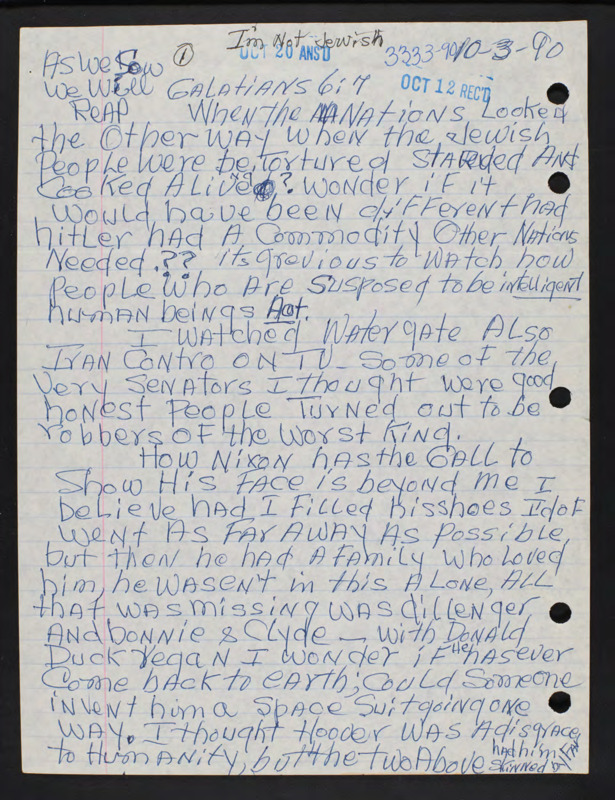 I'm Not Jewish
① OCT 20 ANS'D 3333-90 10-3-90
As We Sow
We Will GALATIANS 6:7 OCT 12 REC'D
ReAP When the NAtions Looked
the Other WAY When the Jewish
People Were be Tortured STARVded And
Cooked Alive ? Wonder iF it
Would have been diFFerent had
hitler hAD A Commodity Other NAtions
Needed.?? its grevious to WAtch how
People Who Are Susposed to be intelligent
human beings Act.
I WAtched WAter gAte ALso
IrAN Contro ON TV - Some of the
Very SeNAtors I thought were good
hoNest People Turned out to be
robbers oF the Worst King.
How Nixon hAs the GAll to
Show His FAce is beyond me I
beLieve hAd I Filled hisshoes I'doF
WeNt AS FAr AWAy As Possible,
but then he hAd A FAmily Who Loved
him, he WAseN't in this A Lone, ALL
thAt WAs missing WAs dillenger
ANd bonnie & Clyde — With DoNAld
Duck regAN I Wonder iF He hAsever
Come bAck to eArth; Could Someone
iNveNt him a SpAce Suit goiNg oNe
WAy. I thought Hoover WAS A disgrAce
to HumANity, but the two Above had him skinned